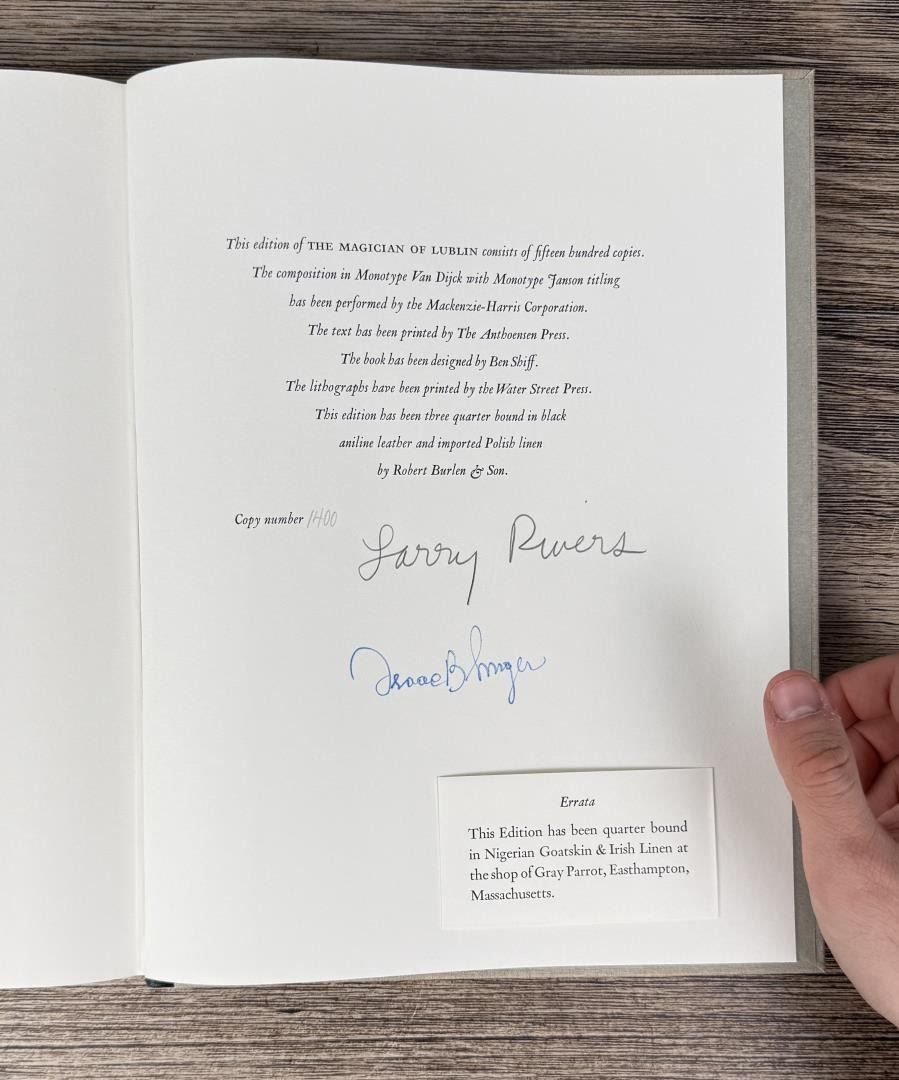 This edition of THE MAGICIAN OF LUBLIN consists of fifteen hundred copies.
The composition in Monotype Van Dijck with Monotype Janson titling
has been performed by the Mackenzie-Harris Corporation.
The text has been printed by The Anthoensen Press.
The book has been designed by Ben Shiff.
The lithographs have been printed by the Water Street Press.
This edition has been three quarter bound in black
aniline leather and imported Polish linen
by Robert Burlen & Son.
Copy number 1400
Larry Rivers
Isaac B Singer
Errata
This Edition has been quarter bound
in Nigerian Goatskin & Irish Linen at
the shop of Gray Parrot, Easthampton,
Massachusetts.